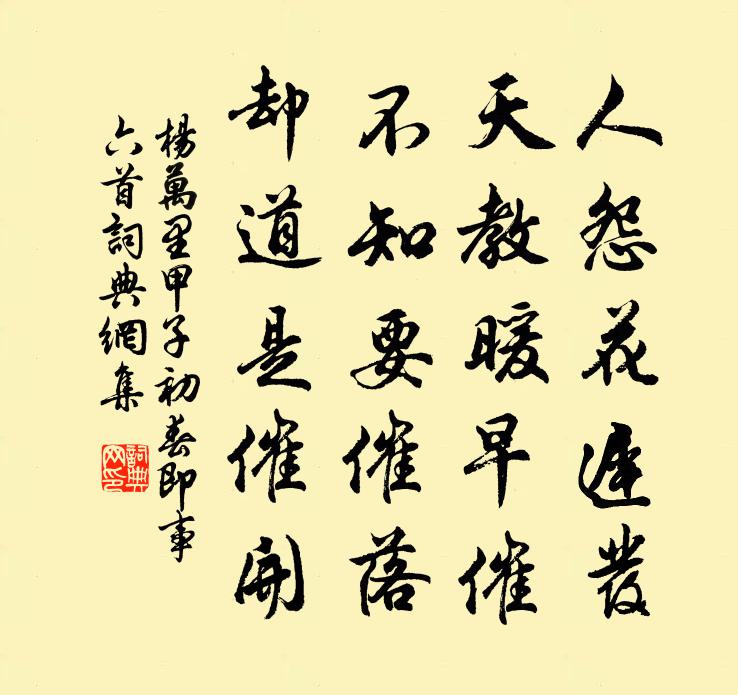 人怨花遲發
天教暖早催
不知要催落
却道是催開
楊萬里甲子初春即事
六首詞典網集
詞典
网印